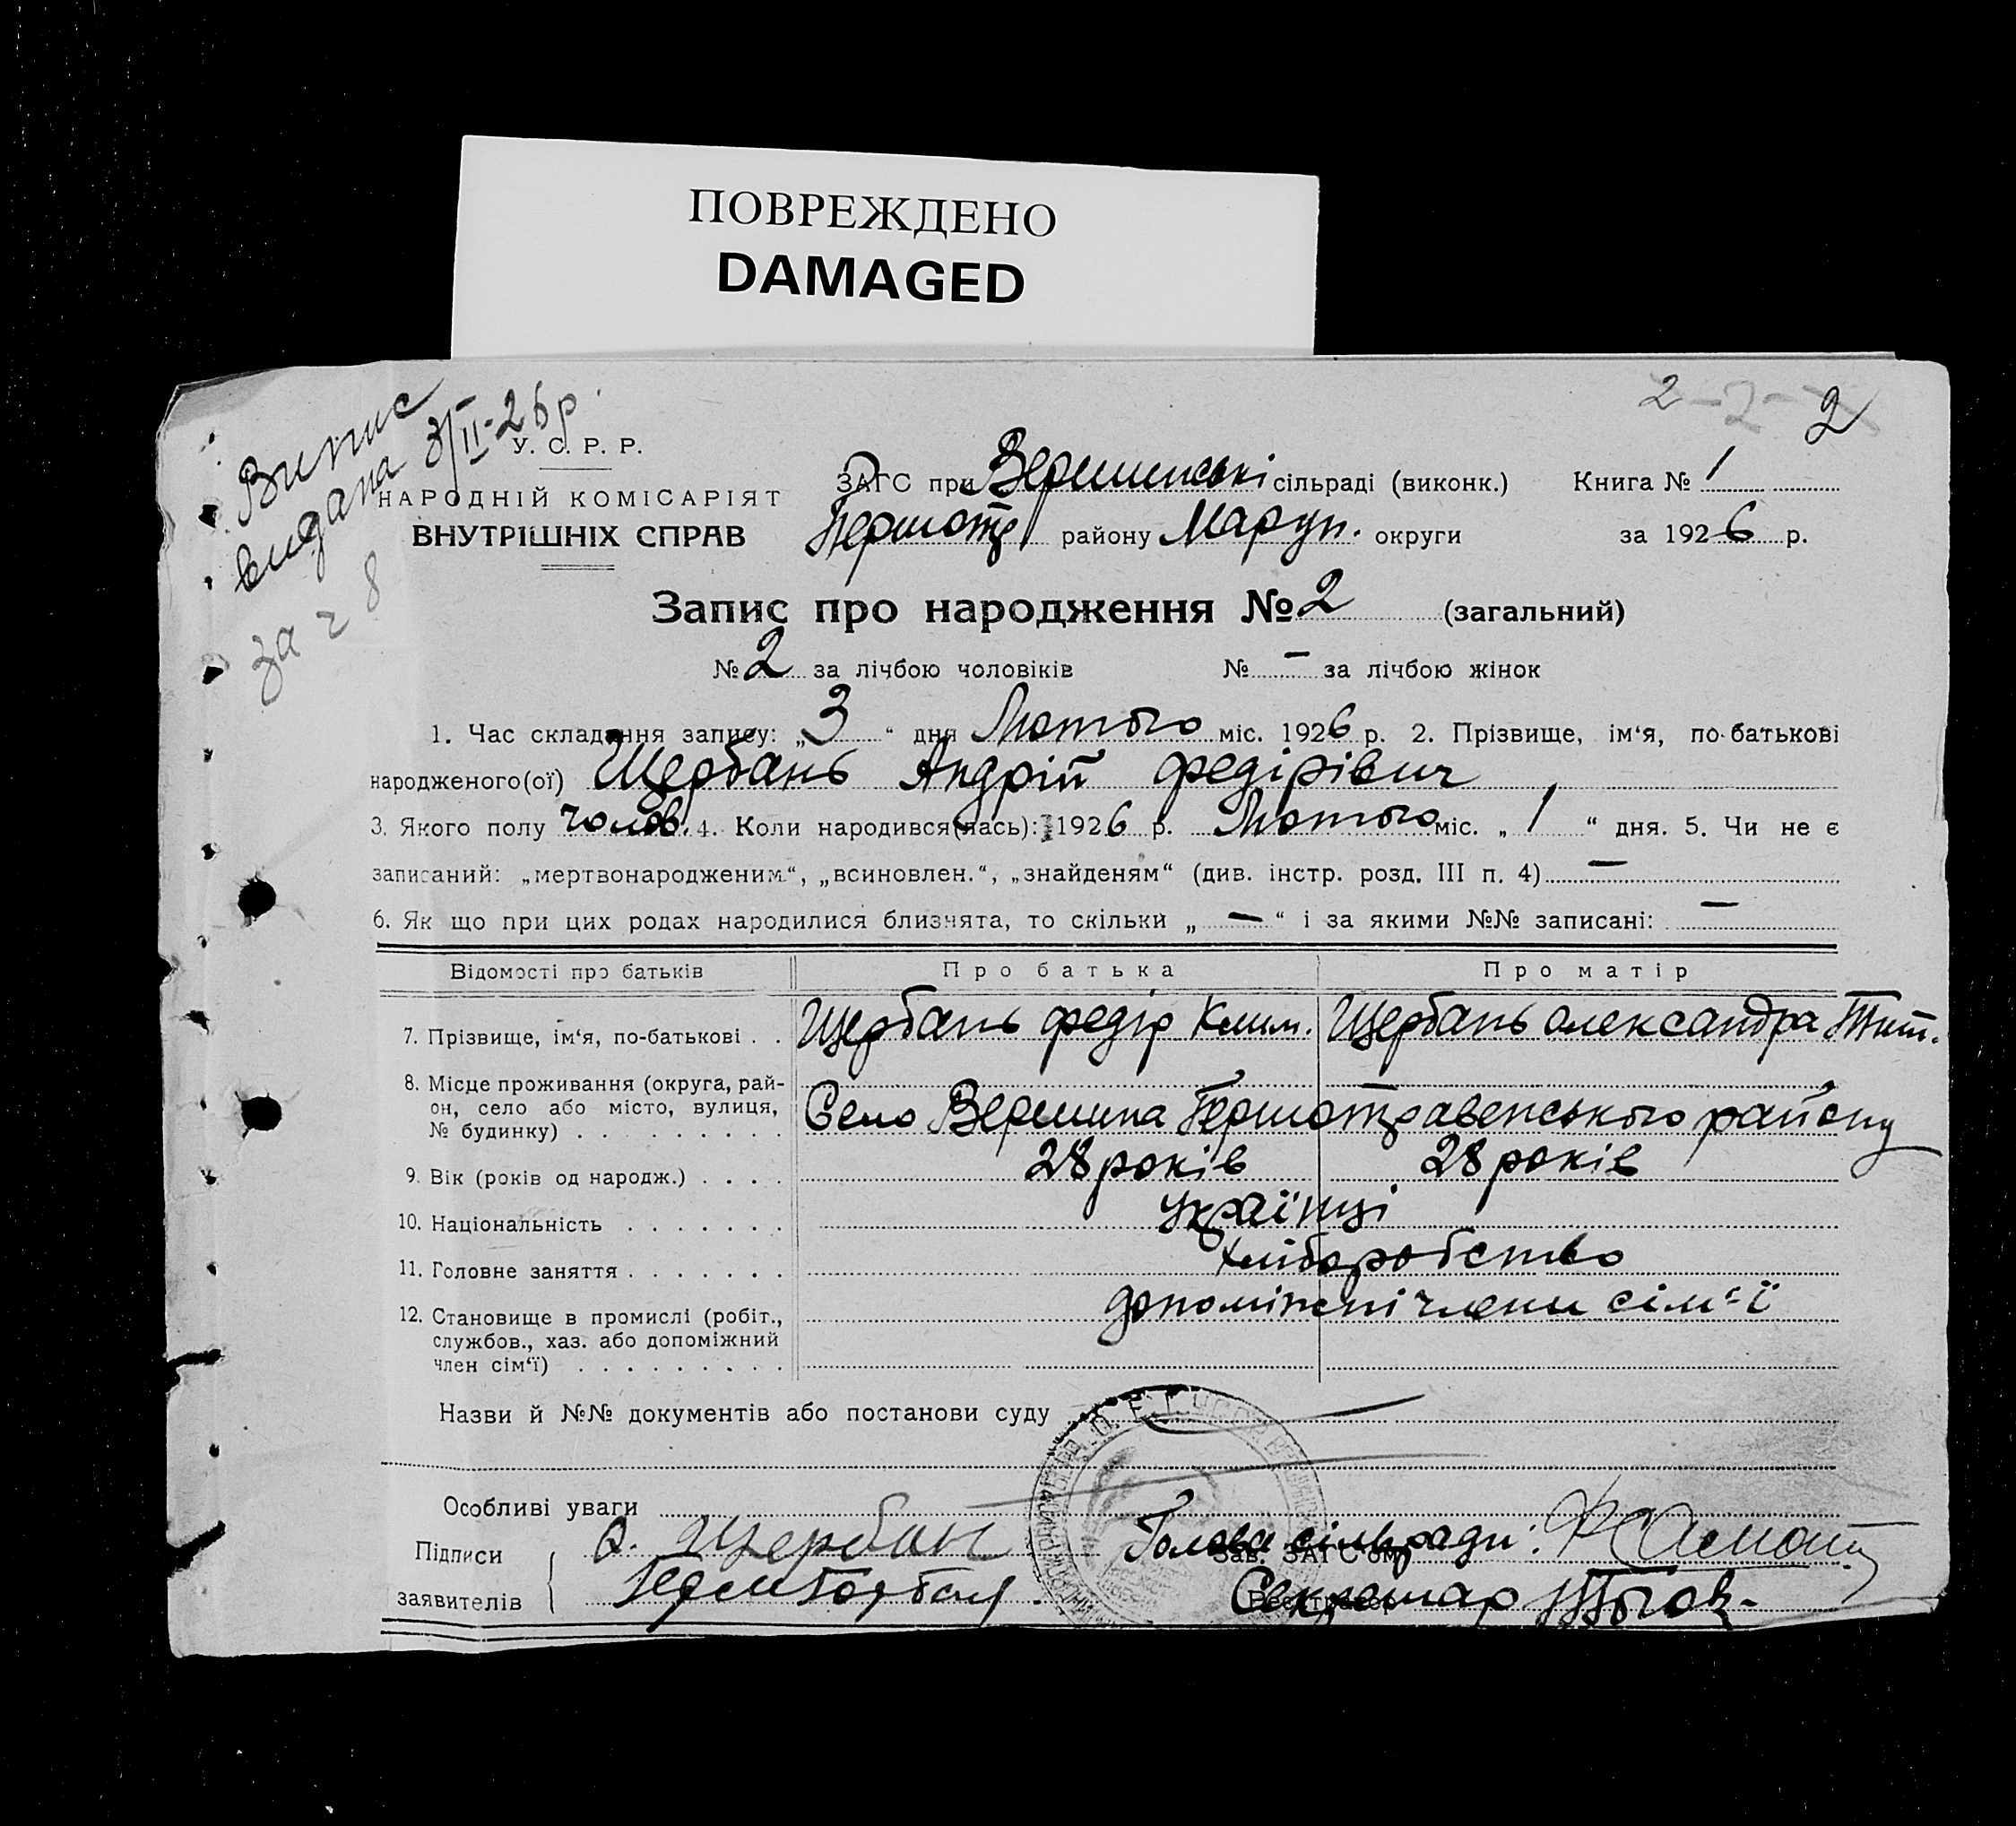 ПОВРЕЖДЕНО
DAMAGED
2 - 2 -
2
Випис
видана 3/II-26 р.
за ч 8
У. С. Р. Р.
НАРОДНІЙ КОМІСАРІЯТ
ВНУТРІШНІХ СПРАВ
ЗАГС при Вершинські сільраді (виконк.) Книга № 1
Першотр району Маруп. округи за 1926 р.
Запис про народження № 2 (загальний)
№ 2 за лічбою чоловіків № – за лічбою жінок
1. Час складання запису: „3“ дня Лютого міс. 1926 р. 2. Прізвище, ім‘я, по-батькові
народженого(ої) Щербань Андрій Федірівич
3. Якого полу чолов. 4. Коли народився(лась): 1926 р. Лютого міс. „1“ дня. 5. Чи не є
записаний: „мертвонародженим“, „всиновлен.“, „знайденям“ (див. інстр. розд. III п. 4) –
6. Як що при цих родах народилися близнята, то скільки „–“ і за якими №№ записані: –
Відомості про батьків Про батька Про матір
7. Прізвище, ім‘я, по-батькові . . Щербань Федір Клим. Щербань Олександра Тит.
8. Місце проживання (округа, рай-
он, село або місто, вулиця,
№ будинку) . . . . . . . . . Село Вершина Першотравенського району
9. Вік (років од народж.) . . . . 28 років 28 років
10. Національність . . . . . . . Українці
11. Головне заняття . . . . . . . Хліборобство
12. Становище в промислі (робіт., допоміжні члени сім‘ї
службов., хаз. або допоміжний
член сім‘ї) . . . . . . . . .
Назви й №№ документів або постанови суду
Особливі уваги
Підписи Щербан Голова сільради:
Зав. ЗАГС‘ом
заявителів Секретар